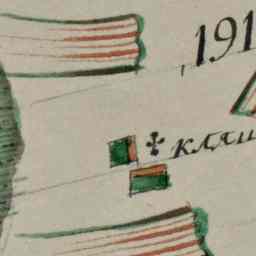 191
кляш